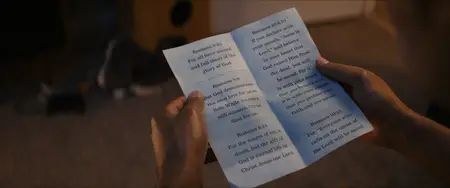 Romans 3:23
For all have sinned
and fall short of the
glory of God
Romans 5:8
But God demonstrates
his own love for us in
this: While
still sinners
Romans 6:23
For the wages of sin is
death, but the gift of
God is eternal life in
Christ Jesus our Lord.
If you declare with
your mouth, "Jesus is
Lord," and believe
in your heart that
God raised him from
the dead, you will
be saved. For it
is with your
that you
is with your mouth
that you
faith and are saved.
For, "Everyone who
calls on the name of
the Lord will be saved